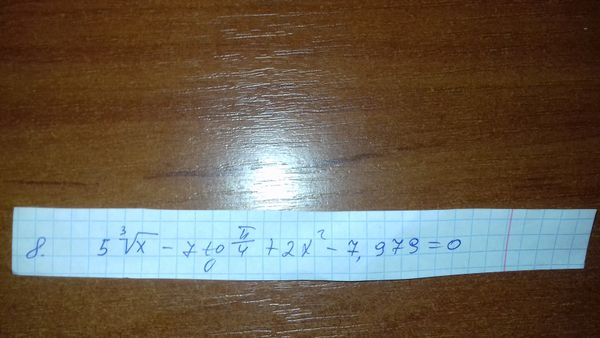 8. 5∛x − 7 tg π/4 + 2x² − 7,979 = 0